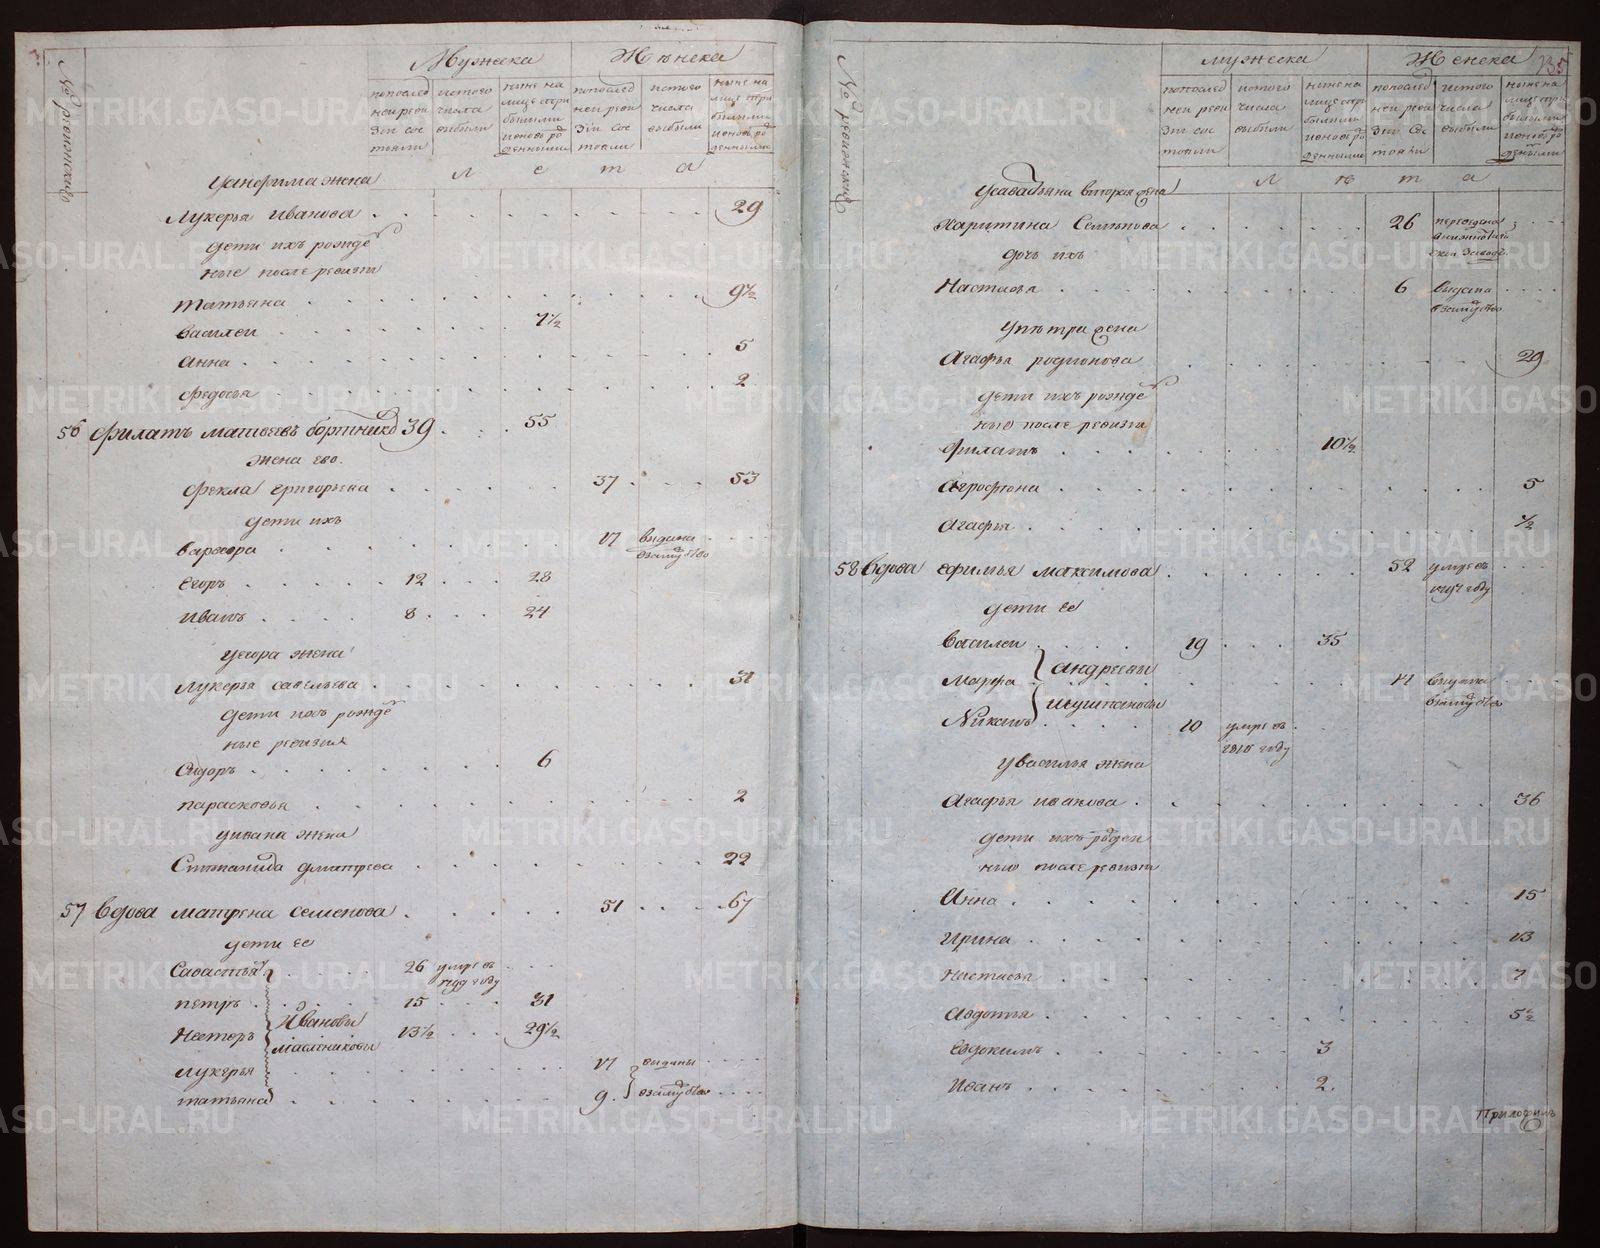 № ревижские
Мужеска
Женска
попослед
ней реви
зии сос
тояли
истого
числа
выбыли
ныне на
лице спри
былыми
иновь ро
денными
попослед
ней реви
зии сос
тояли
истого
числа
выбыли
ныне на
лице спри
былыми
иновь ро
денными
л е т а
уанфима жена
Лукерья иванова 29
дети ихъ рожде
ные после ревизии
татьяна 9½
василеи 7½
анна 5
федосья 2
56 филатъ матвеевъ бортниковъ 39 55
жена ево
фекла григорьева 37 53
дети ихъ
варвара 17 выдана
взамужъство
егоръ 12 28
иванъ 8 24
уегора жена
лукерья савельева 31
дети ихъ рожде
ные ревизии
Сидоръ 6
парасковья 2
уивана жена
Степанида дмитрева 22
57 вдова матрена семенова 51 67
дети ее
Савастьянъ 26 умре въ
1799 году
петръ 15 31
Ивановы
Несторъ 13½ 29½
масленниковы
лукерья 17 выданы
татьяна 9 взамужъство
№ ревижские
135
мужеска
Женска
попослед
ней реви
зии сос
тояли
истого
числа
выбыли
ныне на
лице спри
былыми
иновь ро
денными
попослед
ней реви
зии сос
тояли
истого
числа
выбыли
ныне на
лице спри
былыми
иновь ро
денными
л ѣ т а
усавастьяна вторая жена
Харитина Семенова 26 переведена
внижнетагиль
ской заводъ
дочь ихъ
Настасья 6 выдана
взамужъство
упетра жена
Агафья родионова 29
дети ихъ рожде
ные после ревизии
Филатъ 10½
Агрофена 5
Агафья ½
58 вдова ефимья максимова 52 умре въ
1797 году
дети ее
василеи 19 35
андреевы
марфа 14 выдана
взамужъство
шушпановы
Никонъ 10 умре въ
1810 году
увасилья жена
Агафья иванова 36
дети ихъ рожден
ные после ревизии
Анна 15
Ирина 13
Настасья 7
Авдотья 5½
Евдокимъ 3
Иванъ 2
METRIKI.GASO-URAL.RU